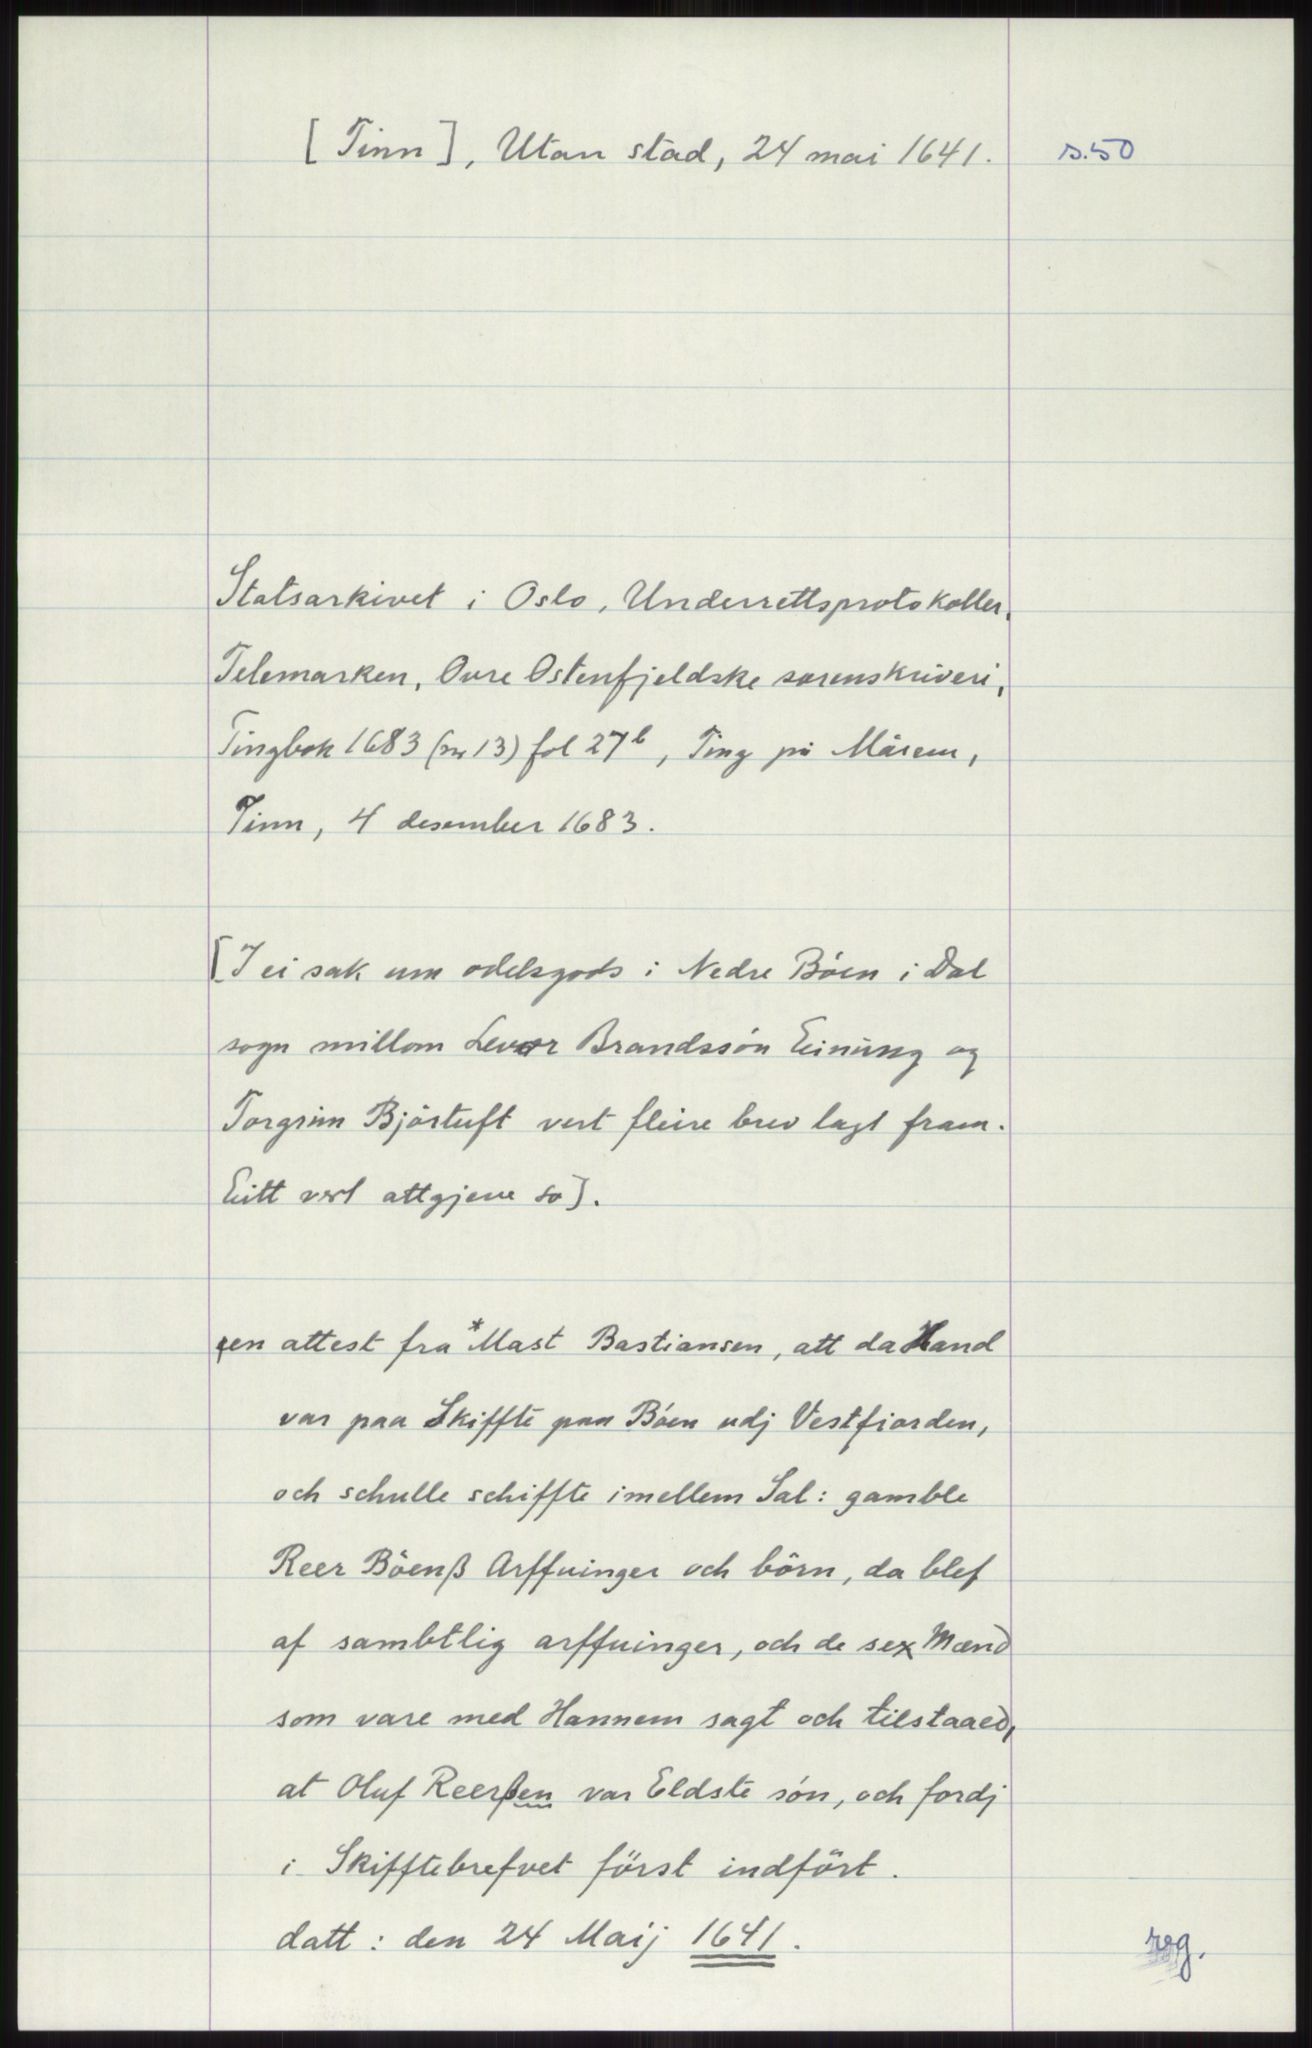 [Tinn], Utan stad, 24 mai 1641. s.50
Statsarkivet i Oslo, Underrettsprotokoller,
Telemarken, Øvre Østenfjeldske sorenskriveri,
Tingbok 1683 (nr 13) fol 27b, Ting på Mårem,
Tinn, 4 desember 1683.
[I ei sak um odelsgods i Nedre Bøen i Dal
sogn millom Levor Brandssón Einúng og
Torgrim Bjórtuft vert fleire brev lagt fram.
Eitt vert attgjeve so].
en attest fra *Mast Bastiansen, att da Hand
var paa Skiffte paa Bóen udj Vestfiorden,
och schulle schiffte imellem Sal: gamble
Reer Böenß Arffuinger och börn, da blef
af sambtlig arffuinger, och de sex Mænd
som vare med Hannem sagt och tilstaaed,
at Oluf Reerßen var Eldste són, och fordj
i Skifftebrefvet först indfört.
datt: den 24 Maij 1641.
reg.